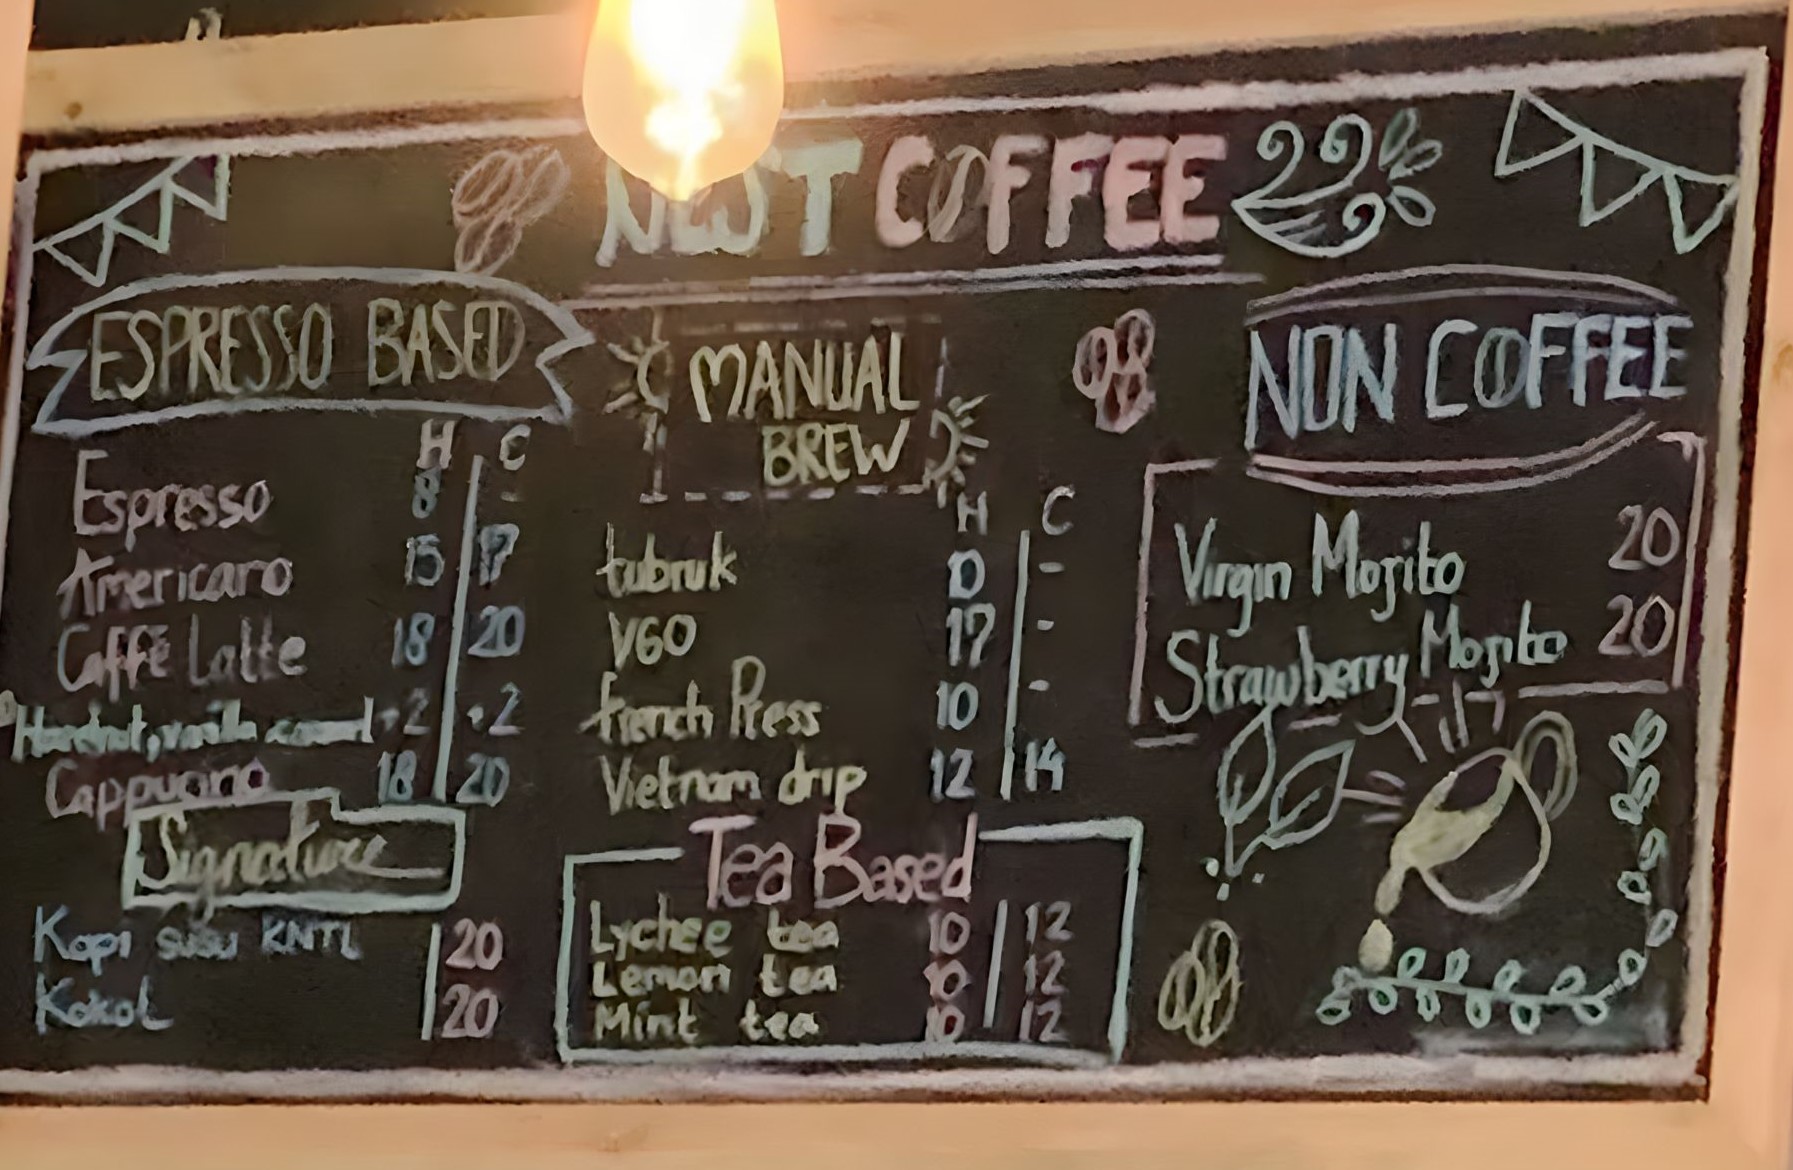 COFFEE
ESPRESSO BASED
H C
Espresso 8 -
Americano 15 17
Caffe Latte 18 20
Hazelnut, vanilla +2 +2
Cappucino 18 20
Signature
Kopi susu KNTL 20
Kokol 20
MANUAL
BREW
H C
tubruk 10 -
V60 17 -
french Press 10 -
Vietnam drip 12 14
Tea Based
Lychee tea 10 12
Lemon tea 10 12
Mint tea 10 12
NON COFFEE
Virgin Mojito 20
Strawberry Mojito 20